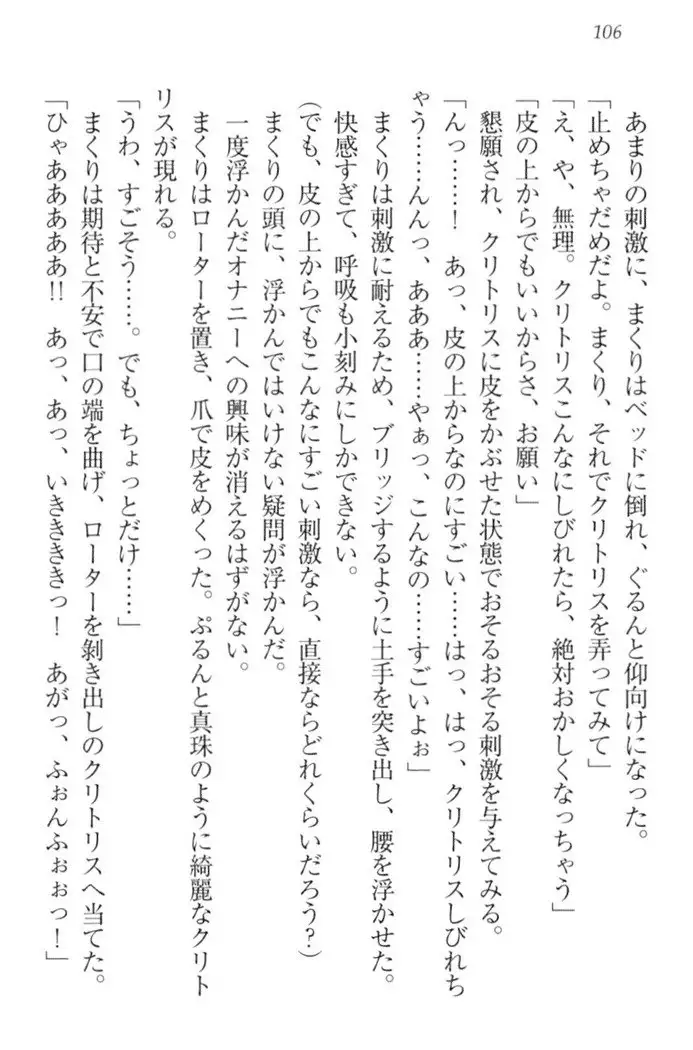 106
あまりの刺激に、まくりはベッドに倒れ、ぐるんと仰向けになった。
「止めちゃだめだよ。まくり、それでクリトリスを弄ってみて」
「え、や、無理。クリトリスこんなにしびれたら、絶対おかしくなっちゃう」
「皮の上からでもいいからさ、お願い」
懇願され、クリトリスに皮をかぶせた状態でおそるおそる刺激を与えてみる。
「んっ……！　あっ、皮の上からなのにすごい……はっ、はっ、クリトリスしびれち
ゃう……んんっ、あああ……やぁっ、こんなの……すごいよぉ」
まくりは刺激に耐えるため、ブリッジするように土手を突き出し、腰を浮かせた。
快感すぎて、呼吸も小刻みにしかできない。
(でも、皮の上からでもこんなにすごい刺激なら、直接ならどれくらいだろう？)
まくりの頭に、浮かんではいけない疑問が浮かんだ。
一度浮かんだオナニーへの興味が消えるはずがない。
まくりはローターを置き、爪で皮をめくった。ぷるんと真珠のように綺麗なクリト
リスが現れる。
「うわ、すごそう……。でも、ちょっとだけ……」
まくりは期待と不安で口の端を曲げ、ローターを剝き出しのクリトリスへ当てた。
「ひゃああああああ!!　あっ、あっ、いきききききっ！　あがっ、ふぉんふぉぉっ！」